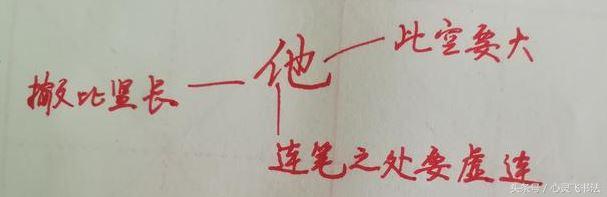 撇比竖长 — 他 — 此空要大
连笔之处要虚连
头条号 / 心灵飞书法